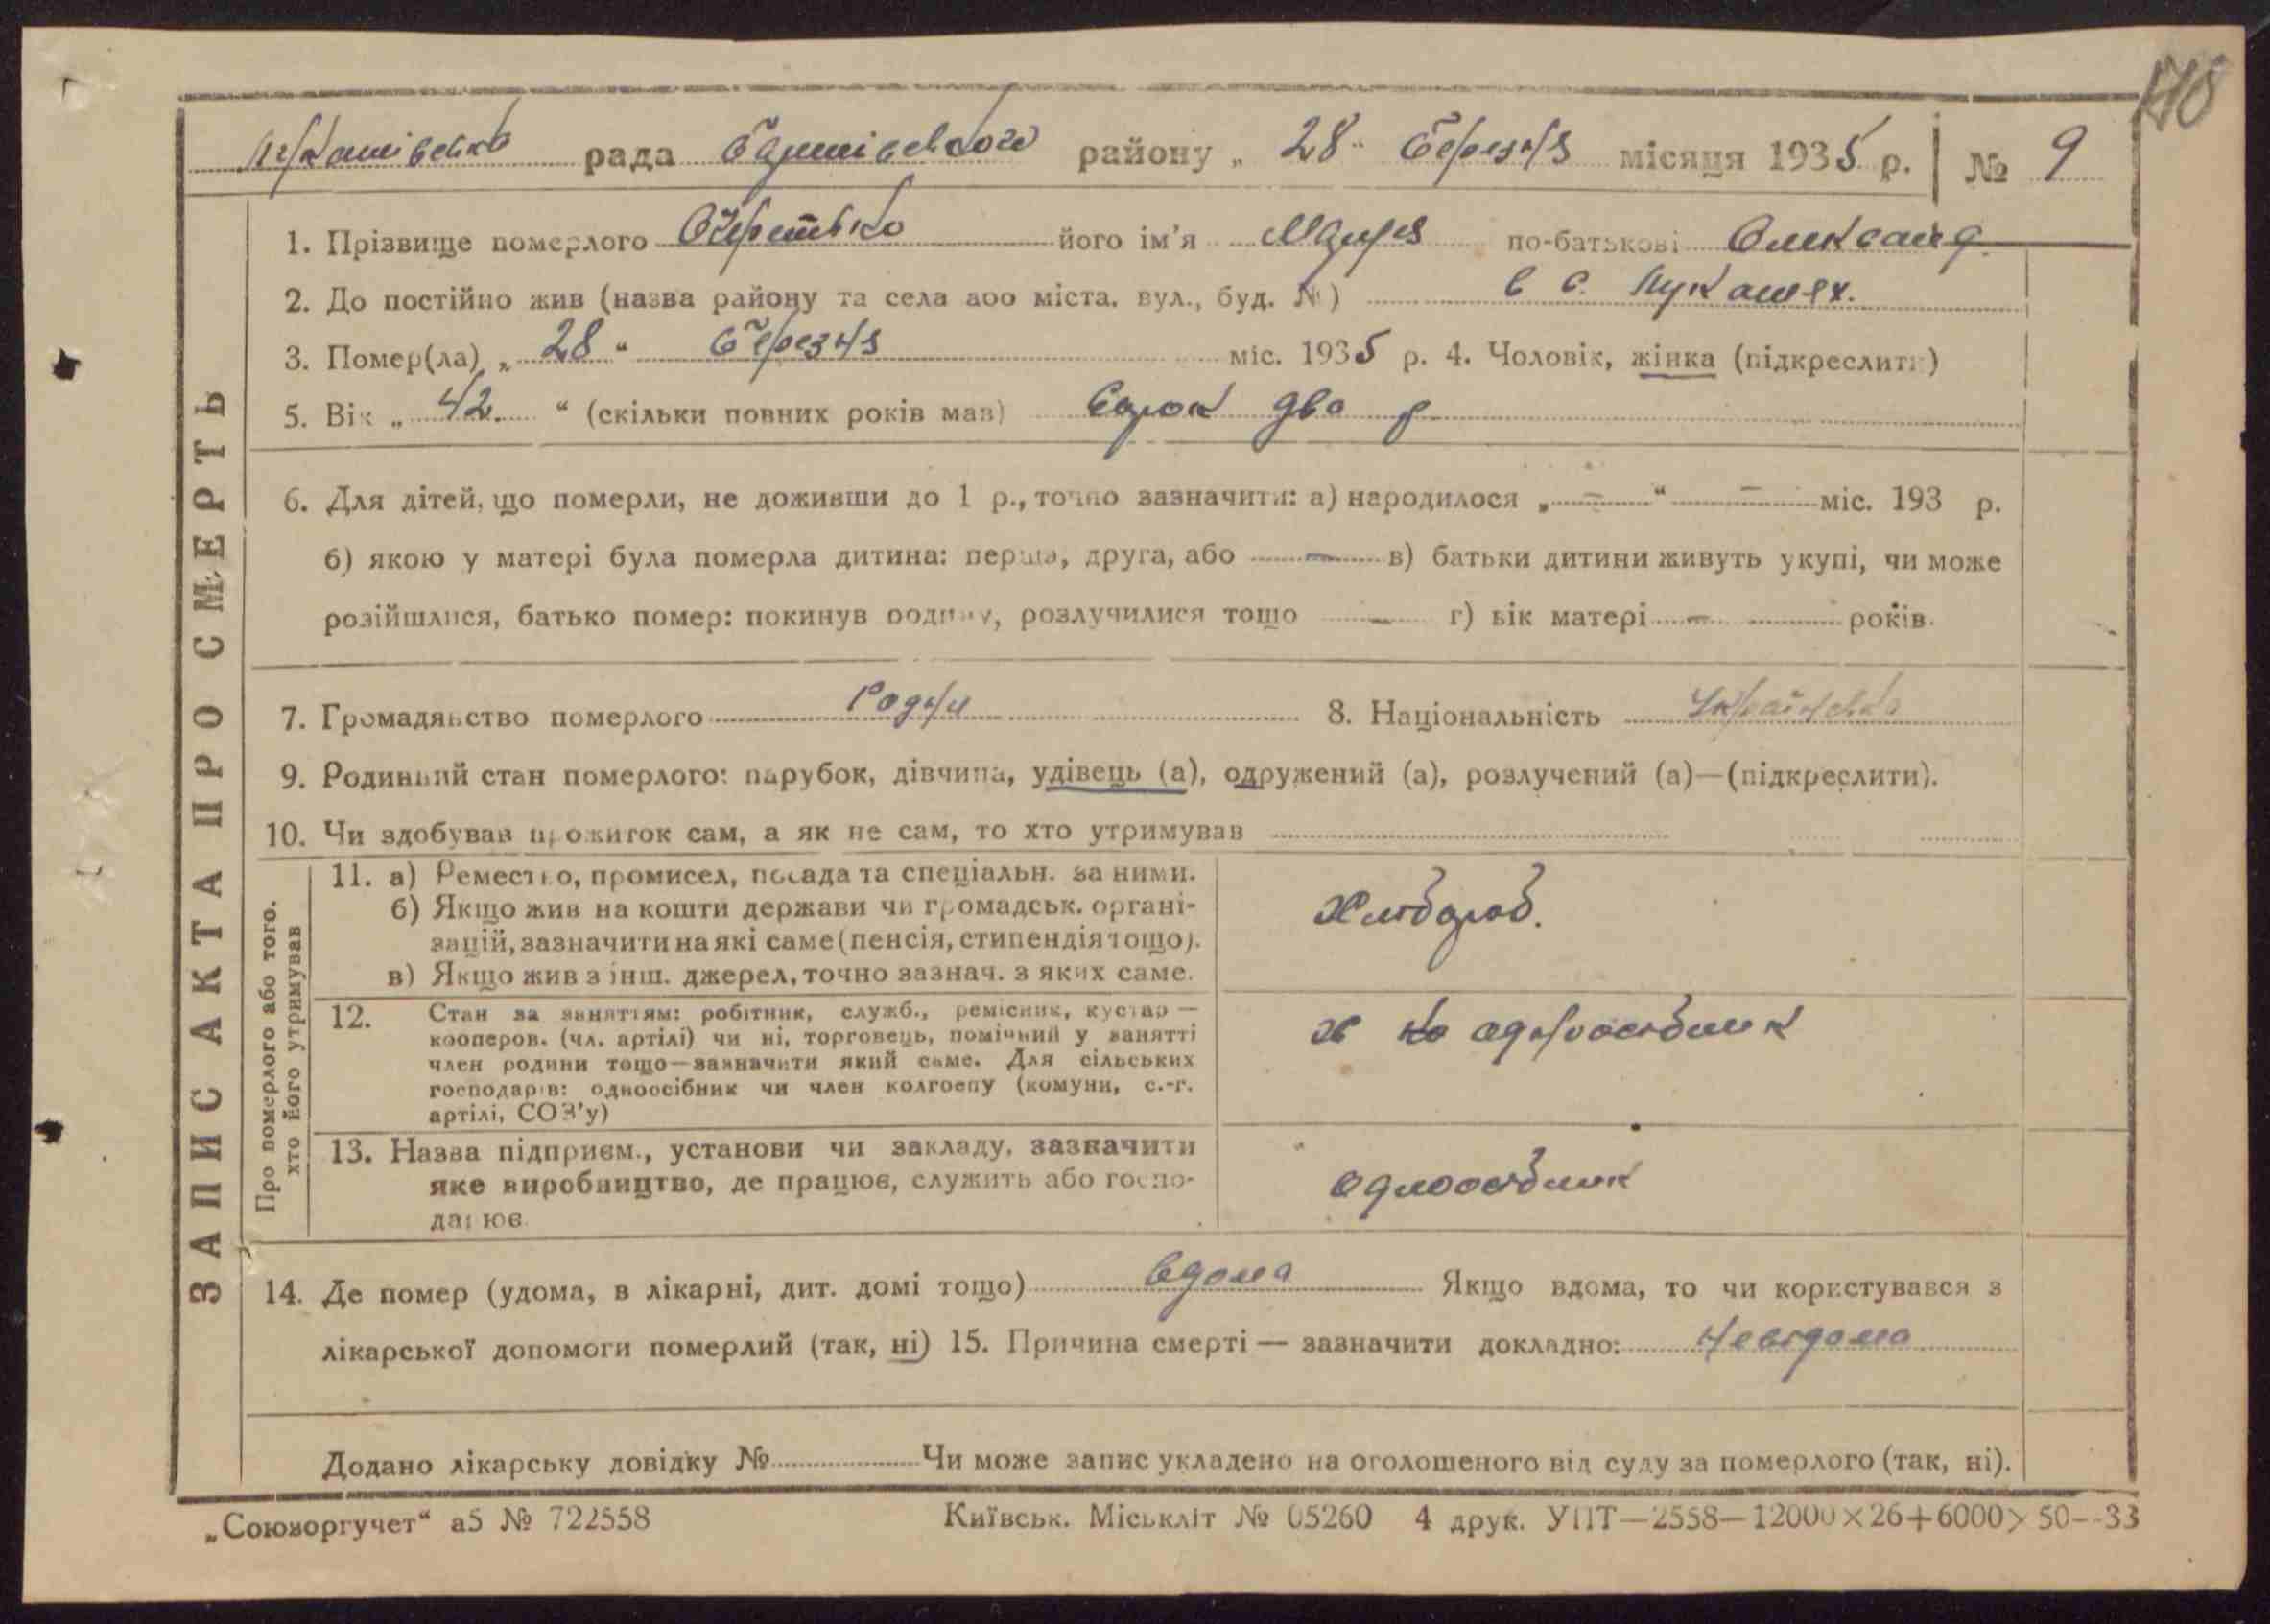 178
Лукашівська рада Баришівського району „ 28 “ березня місяця 1935 р. № 9
1. Прізвище померлого Очеретько його ім’я Марія по-батькові Олександ.
2. До постійно жив (назва району та села або міста, вул., буд. №) в с. Лукашах.
3. Помер(ла) „ 28 “ березня міс. 1935 р. 4. Чоловік, жінка (підкреслити)
5. Вік „ 42. “ (скільки повних років мав) сорок два р
6. Для дітей, що померли, не доживши до 1 р., точно зазначити: а) народилося „ — “ — міс. 193 р.
б) якою у матері була померла дитина: перша, друга, або — в) батьки дитини живуть укупі, чи може
розійшлися, батько помер: покинув родину, розлучилися тощо — г) вік матері — років.
7. Громадянство померлого 8. Національність Українська
9. Родинний стан померлого: парубок, дівчина, удівець (а), одружений (а), розлучений (а)—(підкреслити).
10. Чи здобував прожиток сам, а як не сам, то хто утримував
ЗАПИС АКТА ПРО СМЕРТЬ
Про померлого або того.
хто його утримував
11. а) Ремество, промисел, посада та спеціальн. за ними.
б) Якщо жив на кошти держави чи громадськ. органі-
зацій, зазначити на які саме (пенсія, стипендія тощо).
в) Якщо жив з інш. джерел, точно зазнач. з яких саме.
Хлібороб.
12. Стан за заняттям: робітник, служб., ремісник, кустар —
кооперов. (чл. артілі) чи ні, торговець, помічний у занятті
член родини тощо—зазначити який саме. Для сільських
господарів: одноосібник чи член колгоспу (комуни, с.-г.
артілі, СОЗ’у)
одноосібник
13. Назва підприєм., установи чи закладу, зазначити
яке виробництво, де працює, служить або госпо-
дарює.
одноосібник
14. Де помер (удома, в лікарні, дит. домі тощо) вдома Якщо вдома, то чи користувався з
лікарської допомоги померлий (так, ні) 15. Причина смерті — зазначити докладно: невідома
Додано лікарську довідку № Чи може запис укладено на оголошеного від суду за померлого (так, ні).
„Союзоргучет“ а5 № 722558 Київськ. Міськліт № 05260 4 друк. УПТ—2558—12000×26+6000×50--33